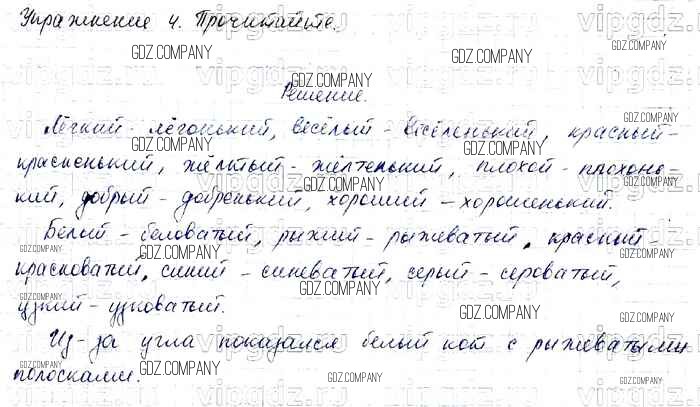 Упражнение 4. Прочитайте.
Решение.
Лёгкий - лёгонький, весёлый - весёленький, красный-
красненький, жёлтый - жёлтенький, плохой - плохонь-
кий, добрый - добренький, хороший - хорошенький.
Белый - беловатый, рыжий - рыжеватый, красный -
красноватый, синий - синеватый, серый - сероватый,
узкий - узковатый.
Из-за угла показался белый кот с рыжеватыми
полосками.
GDZ.COMPANY
vipgdz.ru